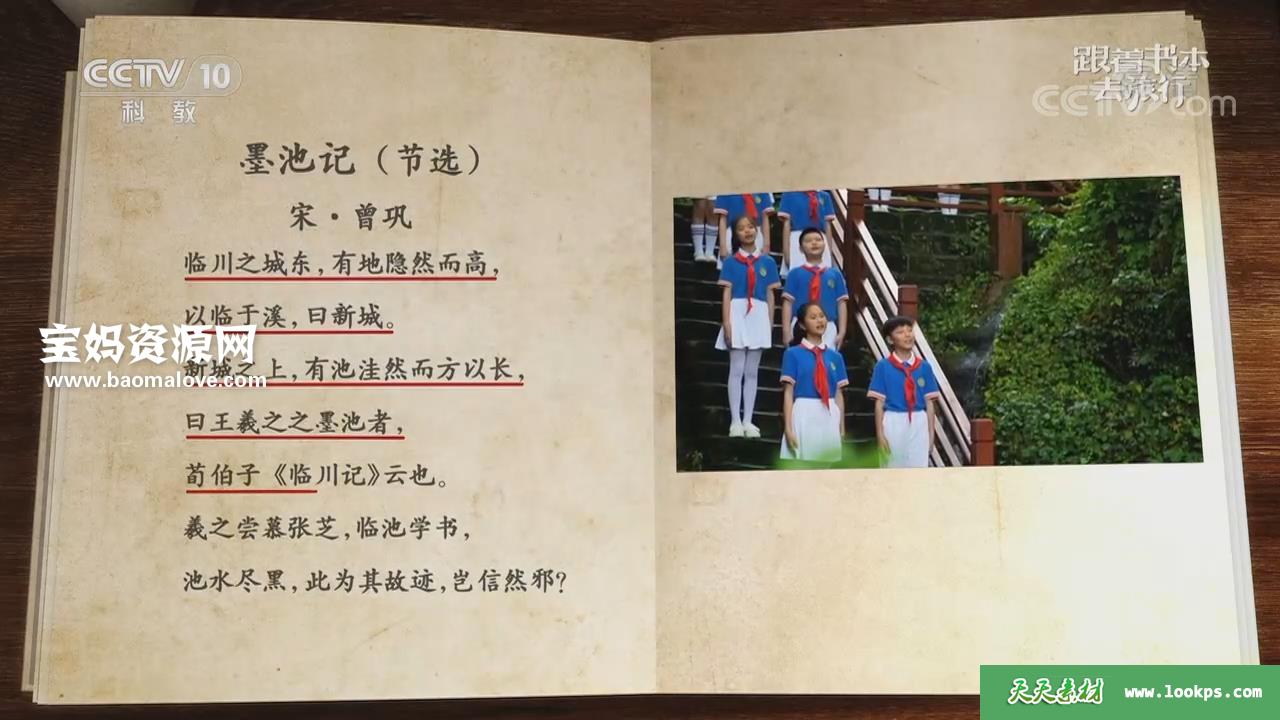 CCTV 10
科教
跟着书本
去旅行
CCTV.com
墨池记（节选）
宋·曾巩
临川之城东，有地隐然而高，
以临于溪，曰新城。
新城之上，有池洼然而方以长，
曰王羲之之墨池者，
荀伯子《临川记》云也。
羲之尝慕张芝，临池学书，
池水尽黑，此为其故迹，岂信然邪？
宝妈资源网
www.baomalove.com
天天素材 www.lookps.com